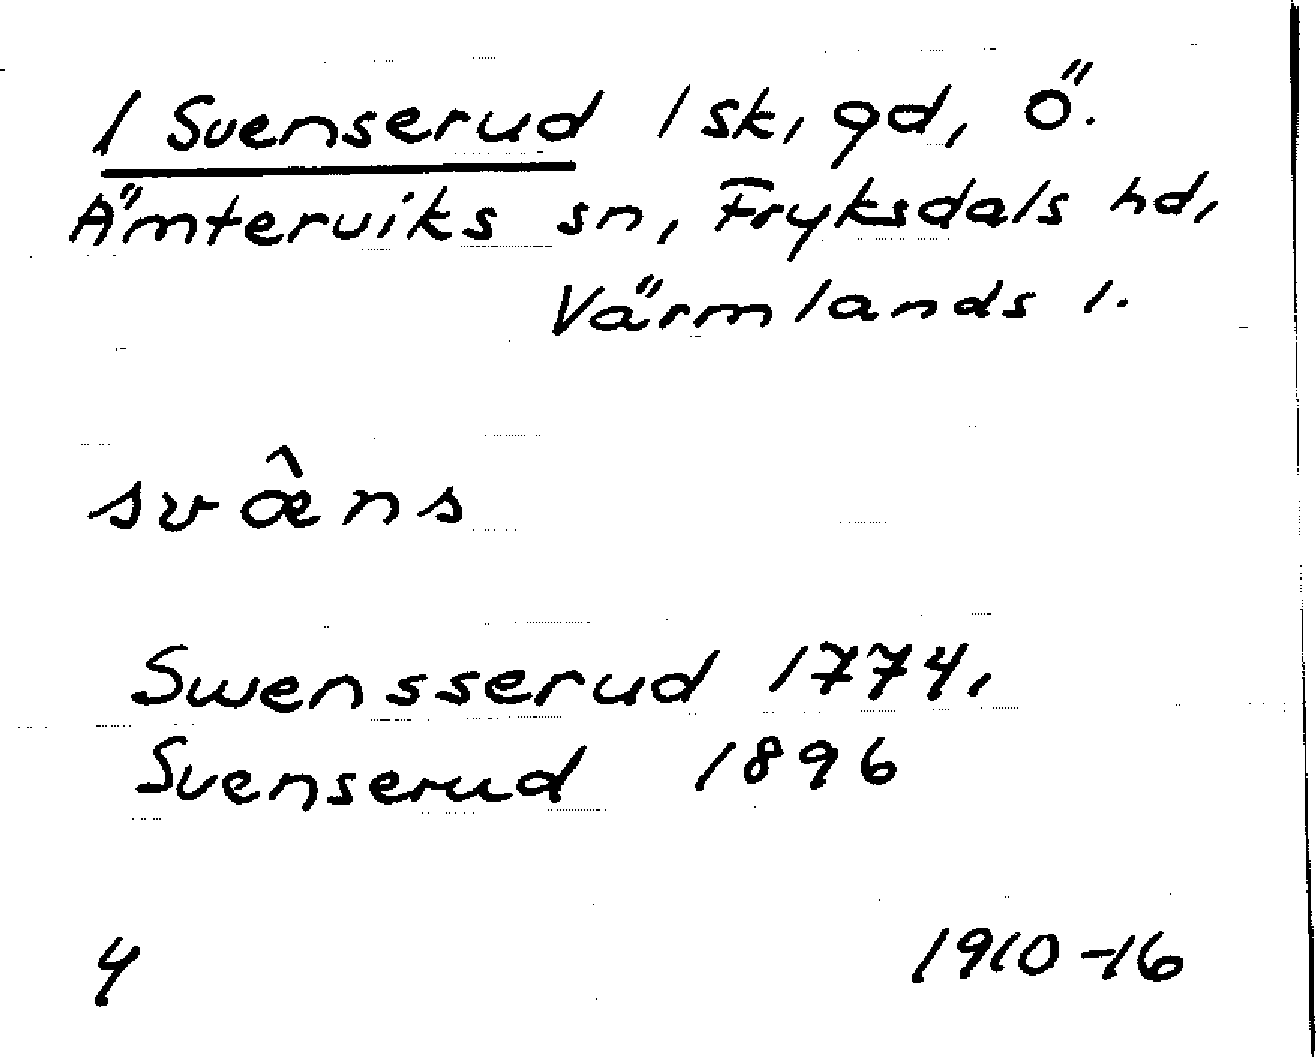 1 Svenserud 1 sk, gd, Ö.
Ämterviks sn, Fryksdals hd,
Värmlands l.
svæ̂ns
Swensserud 1774,
Svenserud 1896
4 1910-16